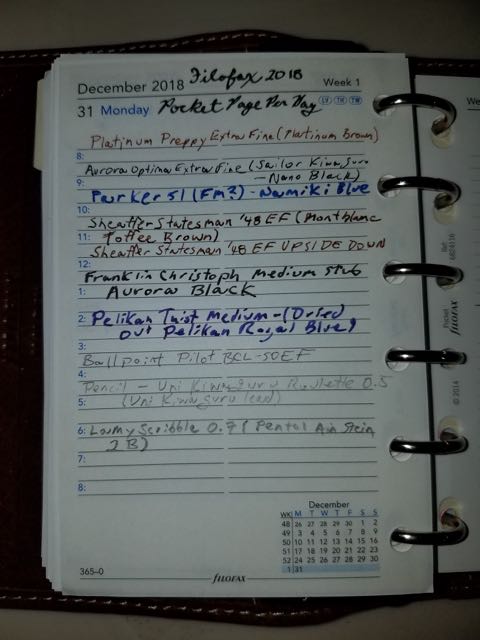 December 2018 Filofax 2018 Week 1
31 Monday Pocket Page Per Day LV TH TW
Platinum Preppy Extra Fine (Platinum Brown)
8:
Aurora Optima Extra Fine (Sailor Kiwa Guro
9: — Nano Black)
Parker 51 (FM?) - Namiki Blue
10:
Sheaffer Statesman '48 EF (Montblanc
11: Toffee Brown)
Sheaffer Statesman '48 EF UPSIDE DOWN
12:
Franklin Christoph Medium Stub
1: Aurora Black
2: Pelikan Twist Medium - (Dried
out Pelikan Royal Blue)
3:
Ballpoint Pilot BCL-50EF
4:
Pencil - Uni Kuru Roulette 0.5
5: (Uni lead)
6: Lamy Scribble 0.7 (Pentel Ain Stein
2B)
7:
8:
December
WK M T W T F S S
48 26 27 28 29 30 1 2
49 3 4 5 6 7 8 9
50 10 11 12 13 14 15 16
51 17 18 19 20 21 22 23
52 24 25 26 27 28 29 30
1 31
365–0 filofax
We
Pocket filofax
© 2014